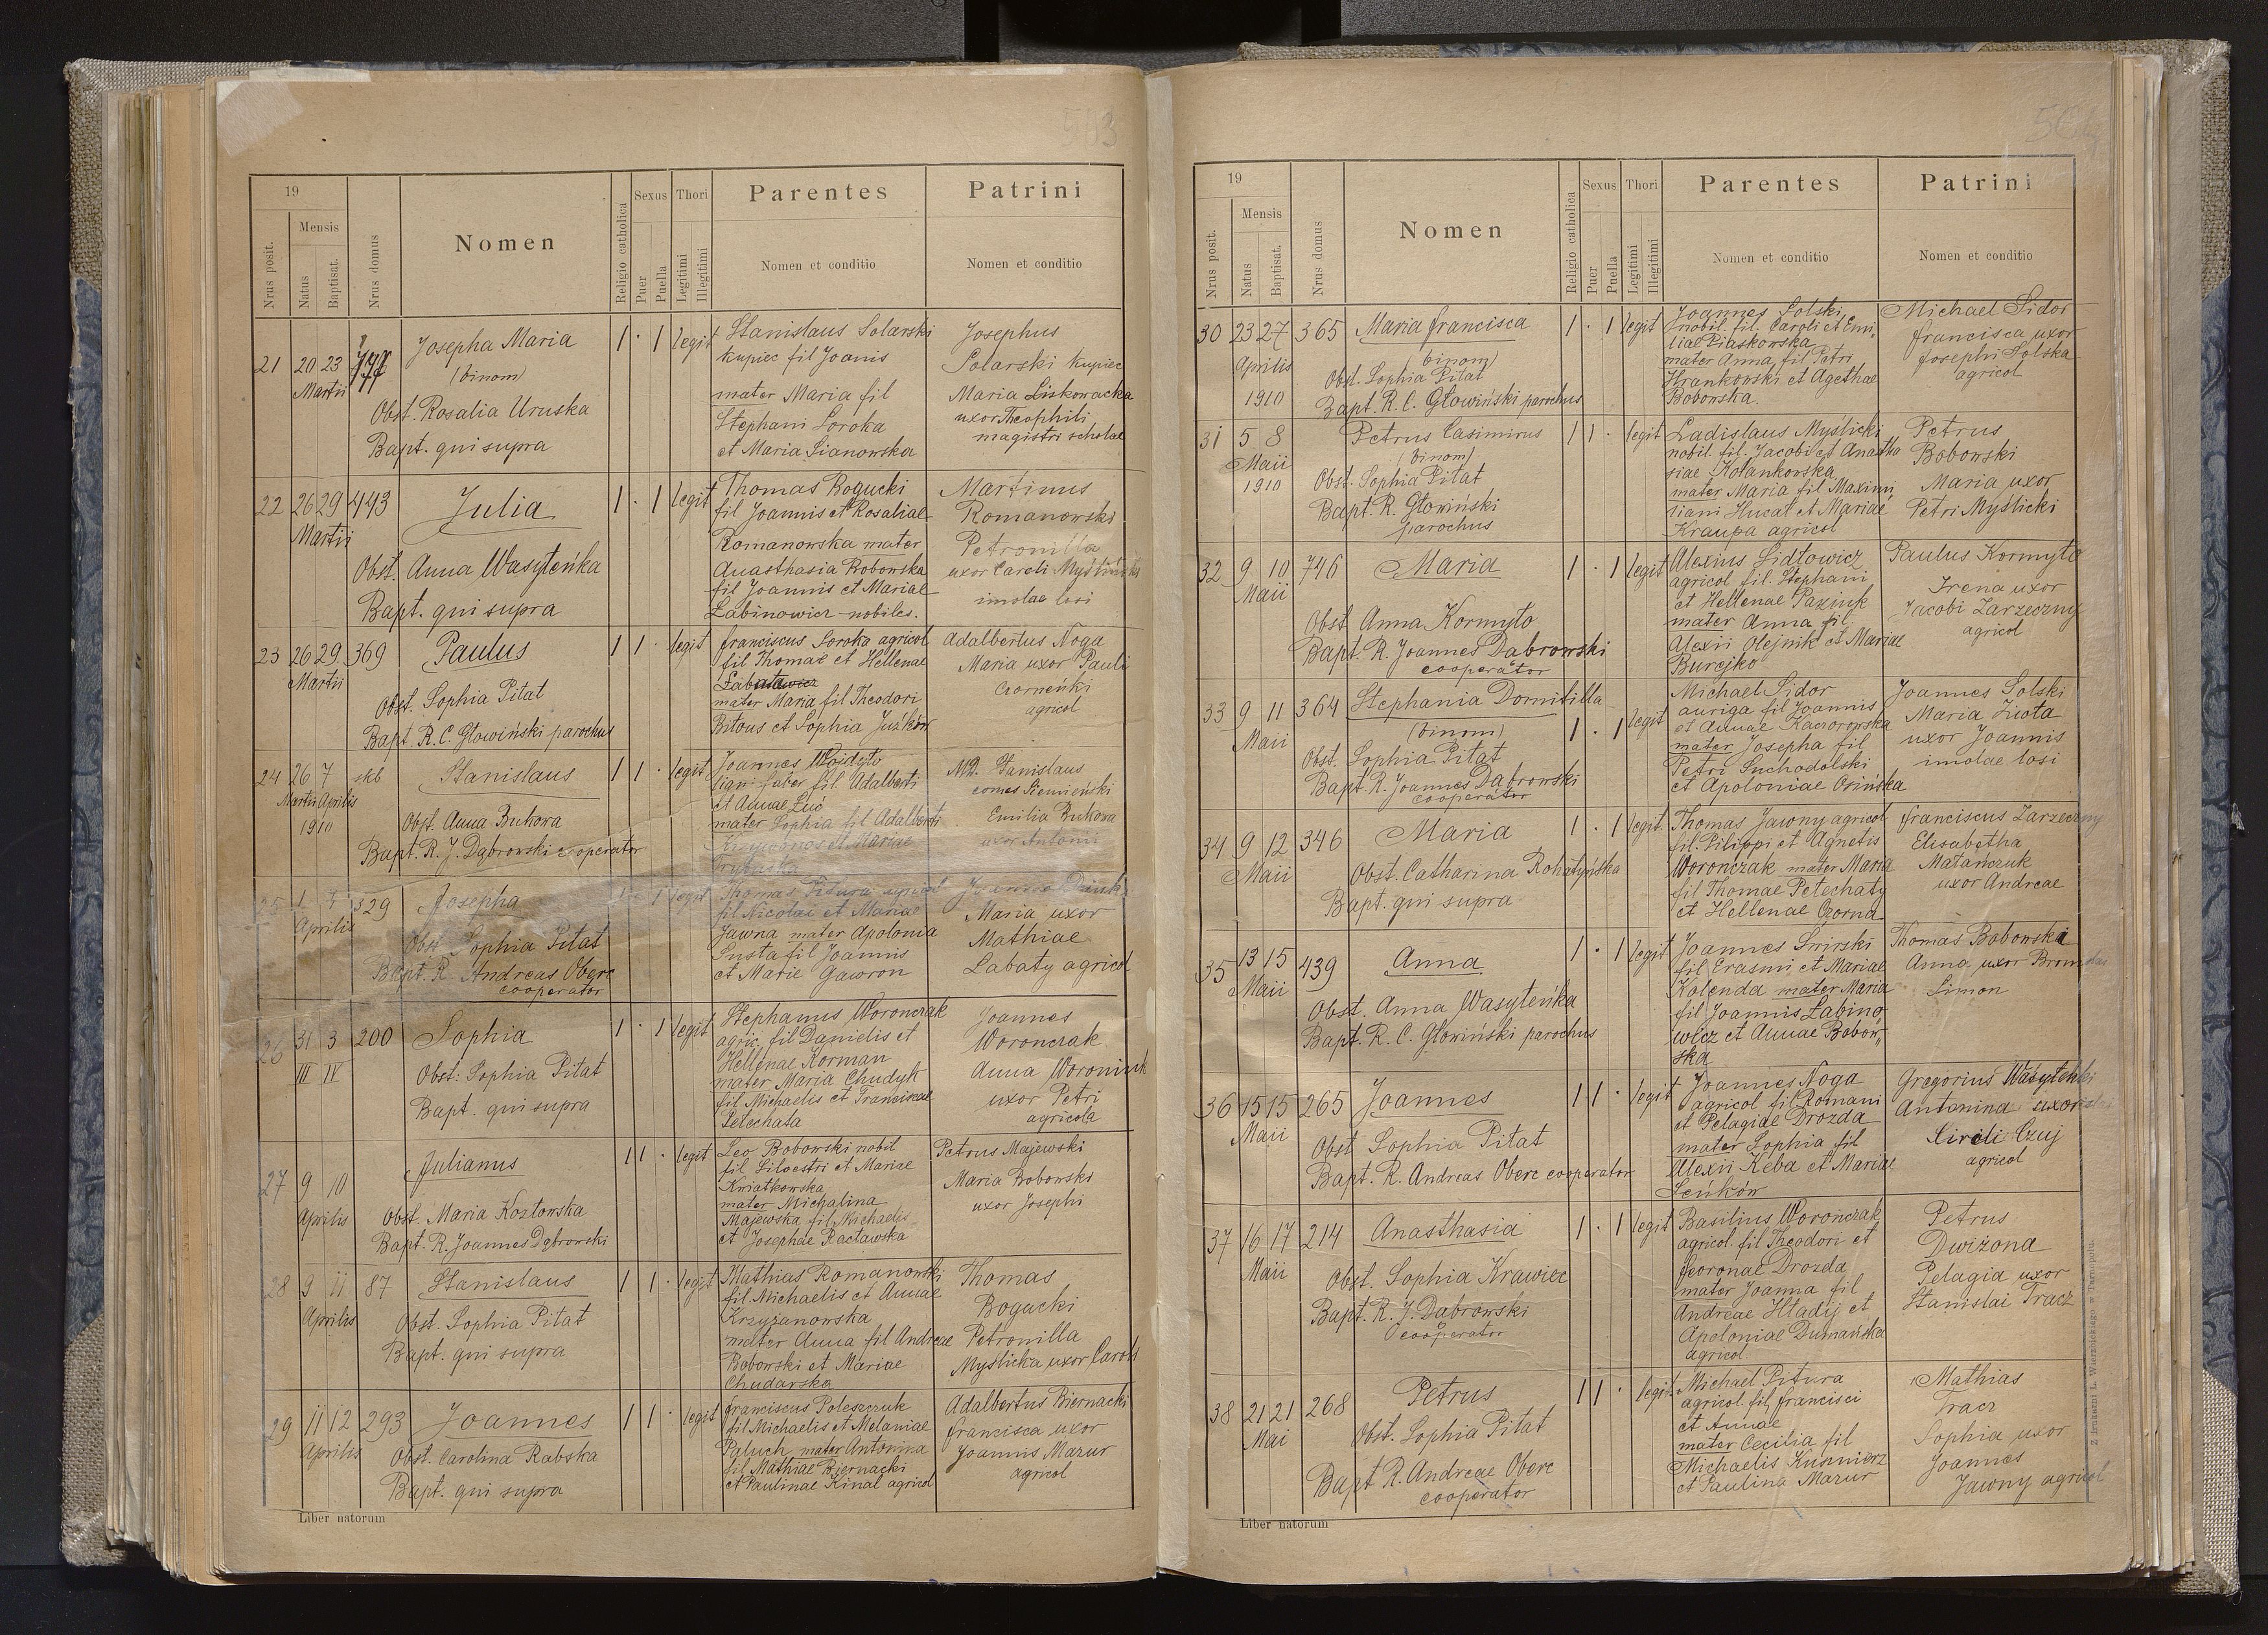 503
19
Mensis
Nrus posit.
Natus
Baptisat.
Nrus domus
Nomen
Religio catholica
Sexus
Puer
Puella
Thori
Legitimi
Illegitimi
Parentes
Nomen et conditio
Patrini
Nomen et conditio
21 20 23 Josepha Maria 1 · 1 legit
Martii
(binom)
Obst. Rosalia Uruska
Bapt. qui supra
Stanislaus Solarski
kupiec fil Joanis
mater Maria fil
Stephani Soroka
et Maria Sianowska
Josephus
Solarski kupiec
Maria Liskowacka
uxor Theophili
magistri scholae
22 26 29 443 Julia 1 · 1 legit
Martii
Obst. Anna Wasyleńka
Bapt. qui supra
Thomas Bogucki
fil Joannis et Rosaliae
Romanowska mater
Anasthasia Bobowska
fil Joannis et Mariae
Labinowicz nobiles.
Martinus
Romanowski
Petronilla
uxor Caroli
imolae loci
23 26 29 369 Paulus 1 1 · legit
Martii
Obst. Sophia Pitat
Bapt. R. C. Głowiński parochus
franciscus Soroka agricol
fil Thomae et Hellenae
mater Maria fil Theodori
Bitous et Sophia Juśków
Adalbertus Noga
Maria uxor Pauli
Czorneńki
agricol
24 26 7 skb Stanislaus 1 1 · legit
Martii Aprilis
1910
Obst. Anna Bukowa
Bapt. R. J. Dąbrowski cooperator
Joannes Wojdyło
lign faber fil. Adalberti
et Annae Łuć
mater Sophia fil Adalberti
et Mariae
Stanislaus
comes Siemieński
Emilia Bukowa
uxor Antonii
25 1 7 329 Josepha 1 · 1 legit
Aprilis
Obst. Sophia Pitat
Bapt. R. Andreas Oberc
cooperator
Thomas Pitura agricol
fil Nicolai et Mariae
Jawna mater Apolonia
Susta fil Joannis
et Marie Gawron
Maria uxor
Mathiae
Labaty agricol
26 31 3 200 Sophia 1 · 1 legit
III IV
Obst: Sophia Pitat
Bapt. qui supra
Stephanus Woronczak
agric. fil Danielis et
Hellenae Korman
mater Maria Chudyk
fil Michaelis et Franciscae
Petechata
Joannes
Woronczak
Anna Woroniuk
uxor Petri
agricola
27 9 10 Julianus 1 1 · legit
Aprilis
Obst. Maria Kozłowska
Bapt. R. Joannes Dąbrowski
Leo Bobowski nobil
fil Silvestri et Mariae
Kwiatkowska
mater Michalina
Majewska fil Michaelis
et Josephae Racławska
Petrus Majewski
Maria Bobowski
uxor Josephi
28 9 11 87 Stanislaus 1 1 · legit
Aprilis
Obst. Sophia Pitat
Bapt. qui supra
Mathias Romanowski
fil Michaelis et Annae
Krzyżanowska
mater Anna fil Andreae
Bobowski et Mariae
Chudarska
Thomas
Bogucki
Petronilla
Myślicka uxor Caroli
29 11 12 293 Joannes 1 1 · legit
Aprilis
Obst. Carolina Rabska
Bapt. qui supra
franciscus Poleszczuk
fil Michaelis et Melaniae
Paluch mater Antonina
fil Mathiae Biernacki
et Paulinae Kinal agricol
Adalbertus Biernacki
francisca uxor
Joannis Mazur
agricol
Liber natorum
19
Mensis
Nrus posit.
Natus
Baptisat.
Nrus domus
Nomen
Religio catholica
Sexus
Puer
Puella
Thori
Legitimi
Illegitimi
Parentes
Nomen et conditio
Patrini
Nomen et conditio
30 23 27 365 Maria francisca 1 · 1 legit
Aprilis
1910
(binom)
Obst. Sophia Pitat
Bapt. R. C. Głowiński parochus
Joannes Solski
nobil. fil. Caroli et Emi-
liae Piaskowska
mater Anna fil Petri
Hrankowski et Agethae
Bobowska.
Michael Sidor
francisca uxor
Josephi Solska
agricol
31 5 8 Petrus Casimirus 1 1 · legit
Maii
1910
(binom)
Obst. Sophia Pitat
Bapt. R. Głowiński
parochus
Ladislaus Myślicki
nobil. fil. Jacobi et Anastha
siae Kolankowska
mater Maria fil Maximi
liani Hucał et Mariae
Kraupa agricol
Petrus
Bobowski
Maria uxor
Petri Myślicki
32 9 10 746 Maria 1 · 1 legit
Maii
Obst. Anna Kormyło
Bapt. R. Joannes Dabrowski
cooperator
Alexius Sidłowicz
agricol fil. Stephani
et Hellenae Paziuk
mater Anna fil
Alexii Olejnik et Mariae
Burejko
Paulus Kormyło
Irena uxor
Jacobi Zarzeczny
agricol
33 9 11 364 Stephania Domitilla 1 · 1 legit
Maii
(binom)
Obst. Sophia Pitat
Bapt. R. Joannes Dąbrowski
cooperator
Michael Sidor
auriga fil Joannis
et Annae Kaczorowska
mater Josepha fil
Petri Suchodolski
et Apoloniae Osińska
Joannes Solski
Maria Zuota
uxor Joannis
imolae loci
34 9 12 346 Maria 1 · 1 legit.
Maii
Obst. Catharina Rohatyńska
Bapt. qui supra
Thomas Jawny agricol
fil. Pilippi et Agnetis
Woronczak mater Maria
fil Thomae Petechaty
et Hellenae Czorna
franciscus Zarzeczny
Elisabetha
Matańczuk
uxor Andreae
35 13 15 439 Anna 1 · 1 legit
Maii
Obst. Anna Wasyleńka
Bapt. R. C. Głowiński parochus
Joannes Swirski
fil Erasmi et Mariae
Kolenda mater Maria
fil Joannis Labino„
wicz et Annae Bobow„
ska
Thomas Bobowski
Anna uxor
Simon
36 15 15 265 Joannes 1 1 · legit
Maii
Obst Sophia Pitat
Bapt. R. Andreas Oberc cooperator
Joannes Noga
agricol fil Romani
et Pelagiae Drozda
mater Sophia fil
Alexii Keba et Mariae
Seńków
Gregorius Wasyleńki
Antonina uxor
Cirili Czuj
agricol
37 16 17 214 Anasthasia 1 · 1 legit
Maii
Obst. Sophia Krawiec
Bapt. R. J. Dabrowski
cooperator
Basilius Woronczak
agricol. fil Theodori et
feoronae Drozda
mater Joanna fil
Andreae Hladij et
Apoloniae Dumańska
agricol.
Petrus
Dwiżona
Pelagia uxor
Stanislai Tracz
38 21 21 268 Petrus 1 1 · legit
Mai
Obst. Sophia Pitat
Bapt R. Andreae Oberc
cooperator
Michael Pitura
agricol. fil francisci
et Annae
mater Cecilia fil
Michaelis Kusnierz
et Paulina Mazur
Mathias
Tracz
Sophia uxor
Joannes
Jawny agricol
Z drukarni L. Wierzbickiego w Tarnopolu.
Liber natorum